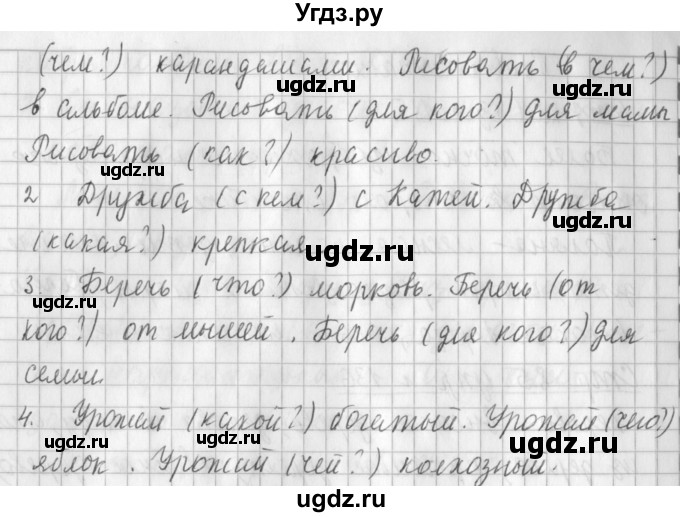 Угдз.ру
(чем?) карандашами. Рисовать (в чем?)
в альбоме. Рисовать (для кого?) для мамы
Рисовать (как?) красиво.
2 Дружба (с кем?) с Катей. Дружба
(какая?) крепкая
3. Беречь (что?) морковь. Беречь (от
кого?) от мышей. Беречь (для кого?) для
семьи.
4. Урожай (какой?) богатый. Урожай (чего?)
яблок. Урожай (чей?) колхозный.
ugdz.ru
ugdz.ru
ugdz.ru
ugdz.ru
ugdz.ru
ugdz.ru
ugdz.ru
ugdz.ru
ugdz.ru
ugdz.ru
ugdz.ru
ugdz.ru
ugdz.ru
ugdz.ru